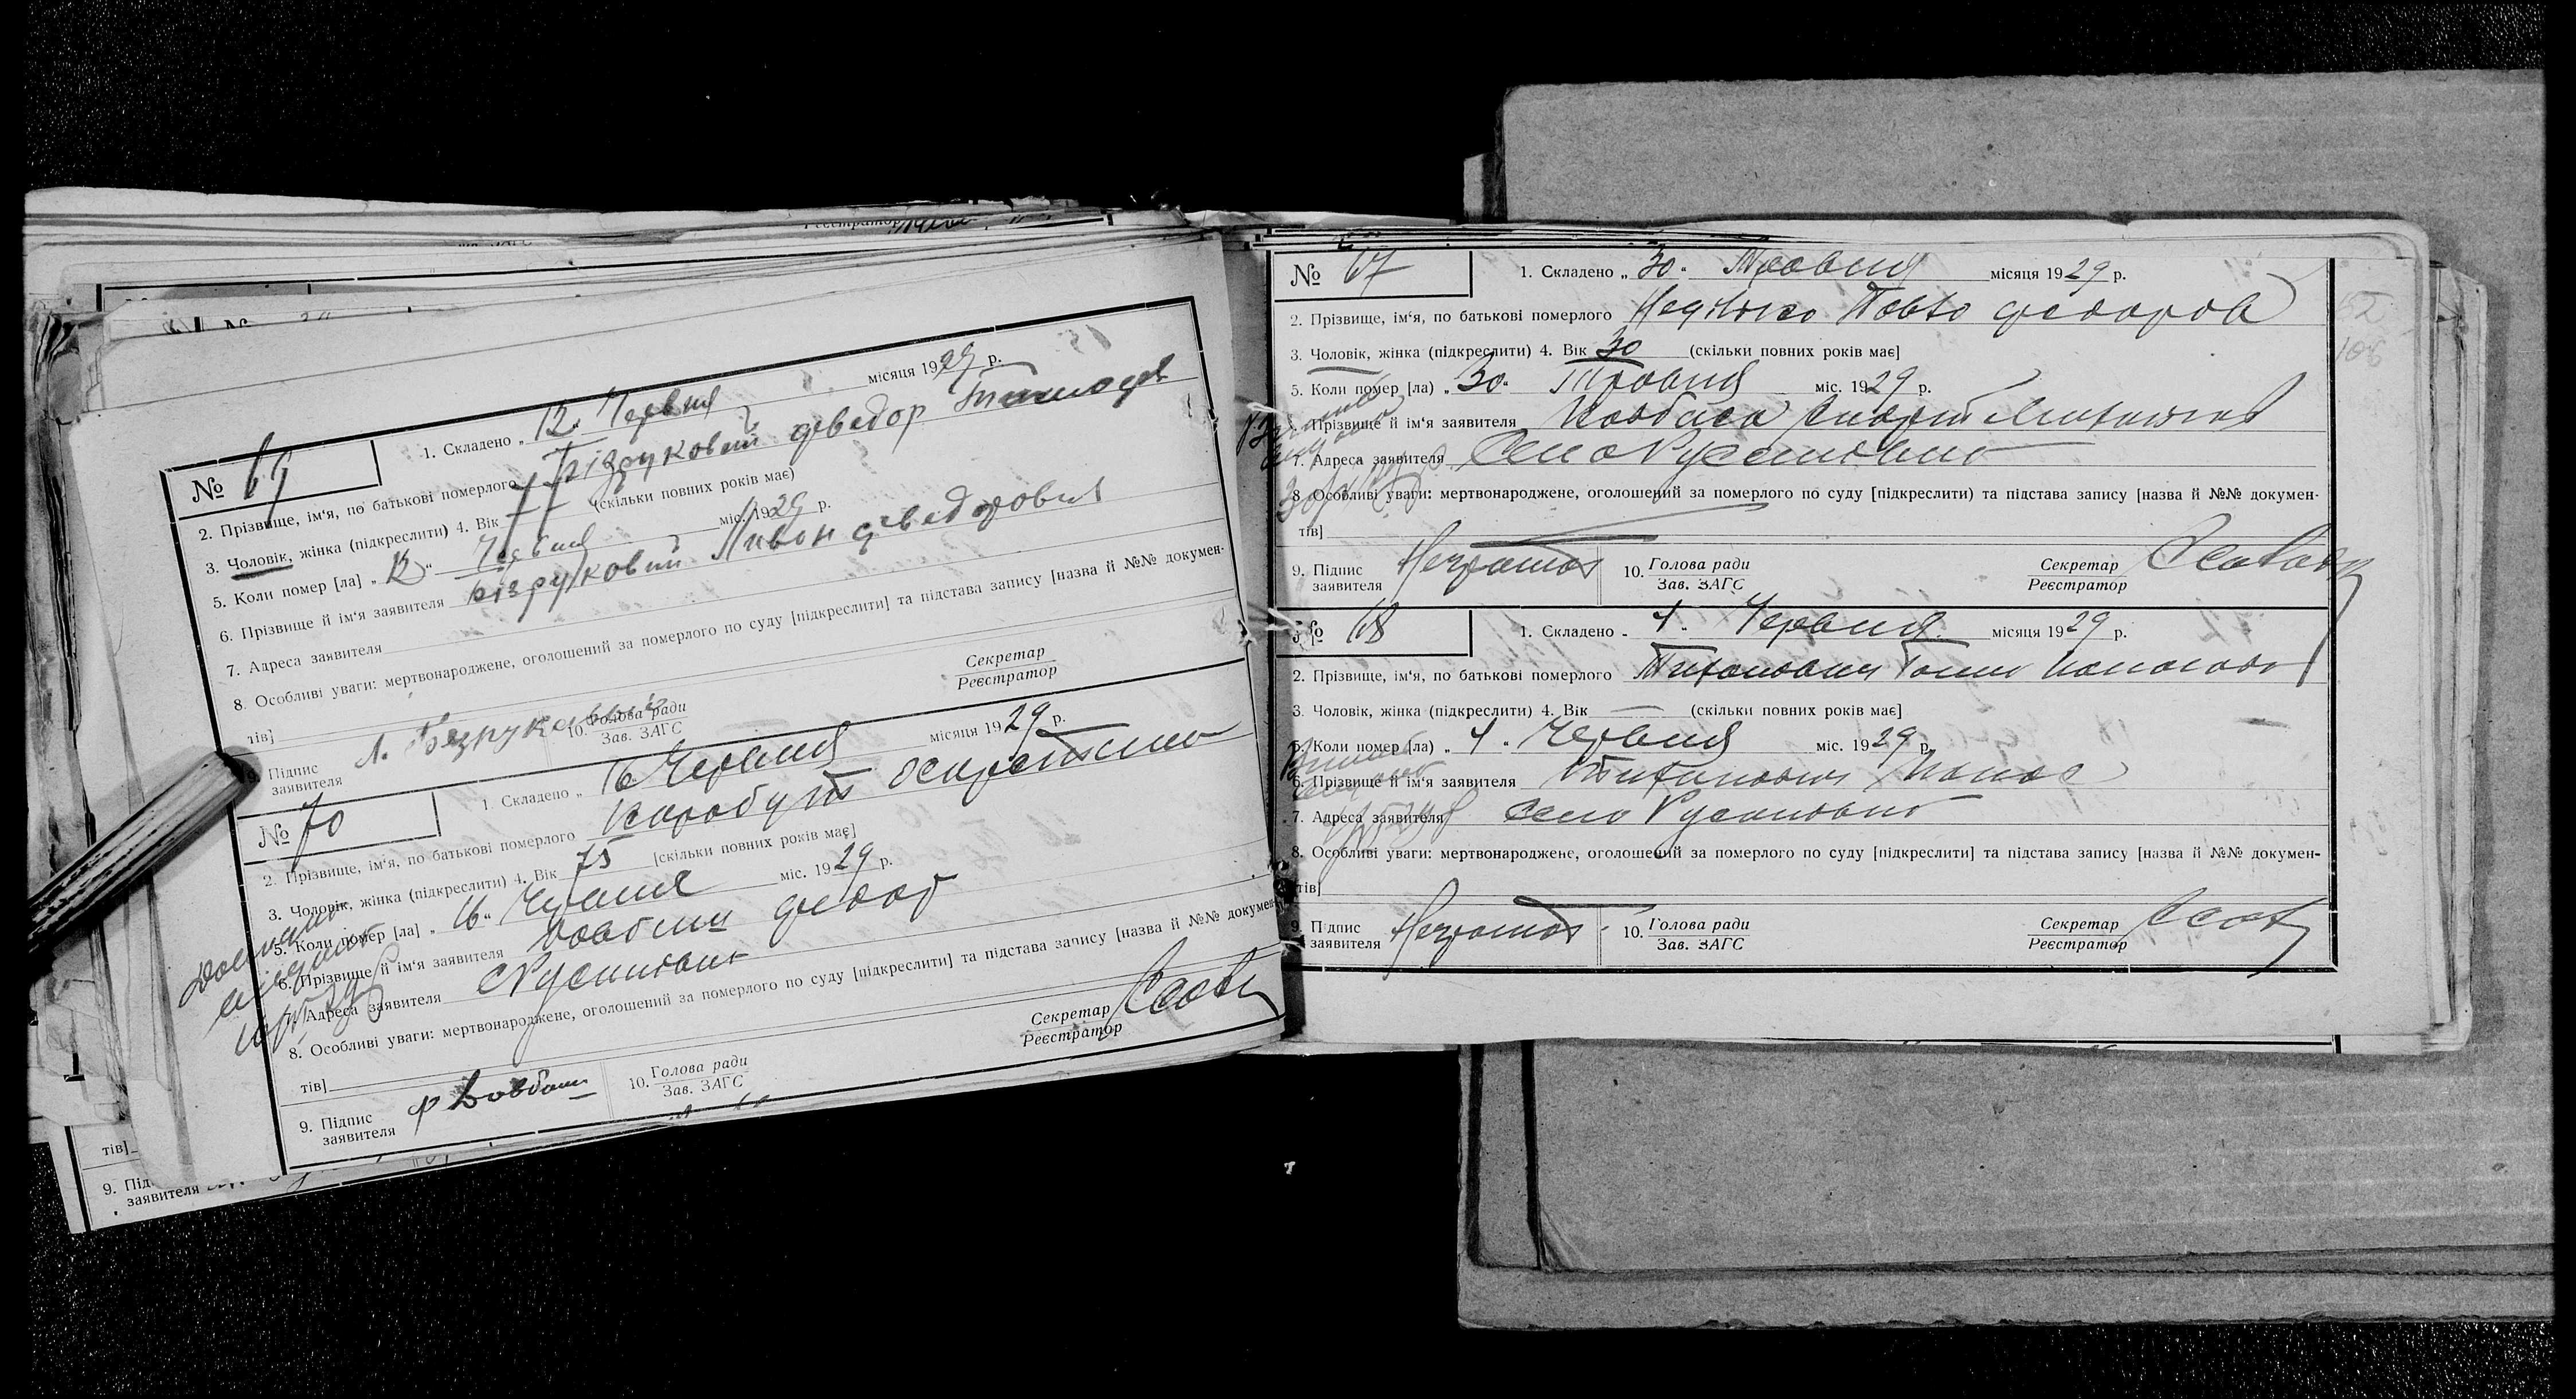 № 69
1. Складено „ 12 " Червня місяця 1929 р.
2. Прізвище, ім'я, по батькові померлого Бізруковий Фведор
3. Чоловік, жінка (підкреслити) 4. Вік 77 (скільки повних років має)
5. Коли помер [ла] „ 12 " Червня міс. 1929 р.
6. Прізвище й ім'я заявителя Бізруковий Ливон Фведорович
7. Адреса заявителя
8. Особливі уваги: мертвонароджене, оголошений за померлого по суду [підкреслити] та підстава запису [назва й №№ докумен-
тів]
9. Підпис заявителя Л. Безруковий
10. Голова ради
Зав. ЗАГС
Секретар
Реєстратор
№ 70
1. Складено „ 16 " Червня місяця 1929 р.
2. Прізвище, ім'я, по батькові померлого Коробут
3. Чоловік, жінка (підкреслити) 4. Вік 75 [скільки повних років має]
5. Коли помер [ла] „ 16 " Червня міс. 1929 р.
6. Прізвище й ім'я заявителя Довбиш Федор
7. Адреса заявителя
8. Особливі уваги: мертвонароджене, оголошений за померлого по суду [підкреслити] та підстава запису [назва й №№ докумен-
тів]
9. Підпис заявителя Ф Довбиш
10. Голова ради
Зав. ЗАГС
Секретар
Реєстратор
тів]
9. Під
заявителя
№ 67
1. Складено „ 30 " Травня місяця 1929 р.
2. Прізвище, ім'я, по батькові померлого Павло Федоров
3. Чоловік, жінка (підкреслити) 4. Вік 30 (скільки повних років має]
5. Коли помер [ла) „ 30 " Травня міс. 1929 р.
6. Прізвище й ім'я заявителя Ковбаса
7. Адреса заявителя Село
8. Особливі уваги: мертвонароджене, оголошений за померлого по суду [підкреслити) та підстава запису [назва й №№ докумен-
тів]
9. Підпис заявителя Неграмот
10. Голова ради
Зав. ЗАГС
Секретар
Реєстратор
№ 68
1. Складено „ 4 " Червня місяця 1929 р.
2. Прізвище, ім'я, по батькові померлого Тихонович
3. Чоловік, жінка (підкреслити) 4. Вік — (скільки повних років має]
5. Коли помер [ла) „ 4 " Червня міс. 1929 р.
6. Прізвище й ім'я заявителя Тихонович
7. Адреса заявителя Село
8. Особливі уваги: мертвонароджене, оголошений за померлого по суду [підкреслити] та підстава запису [назва й №№ докумен-
тів]
9. Підпис заявителя Неграмот
10. Голова ради
Зав. ЗАГС
Секретар
Реєстратор